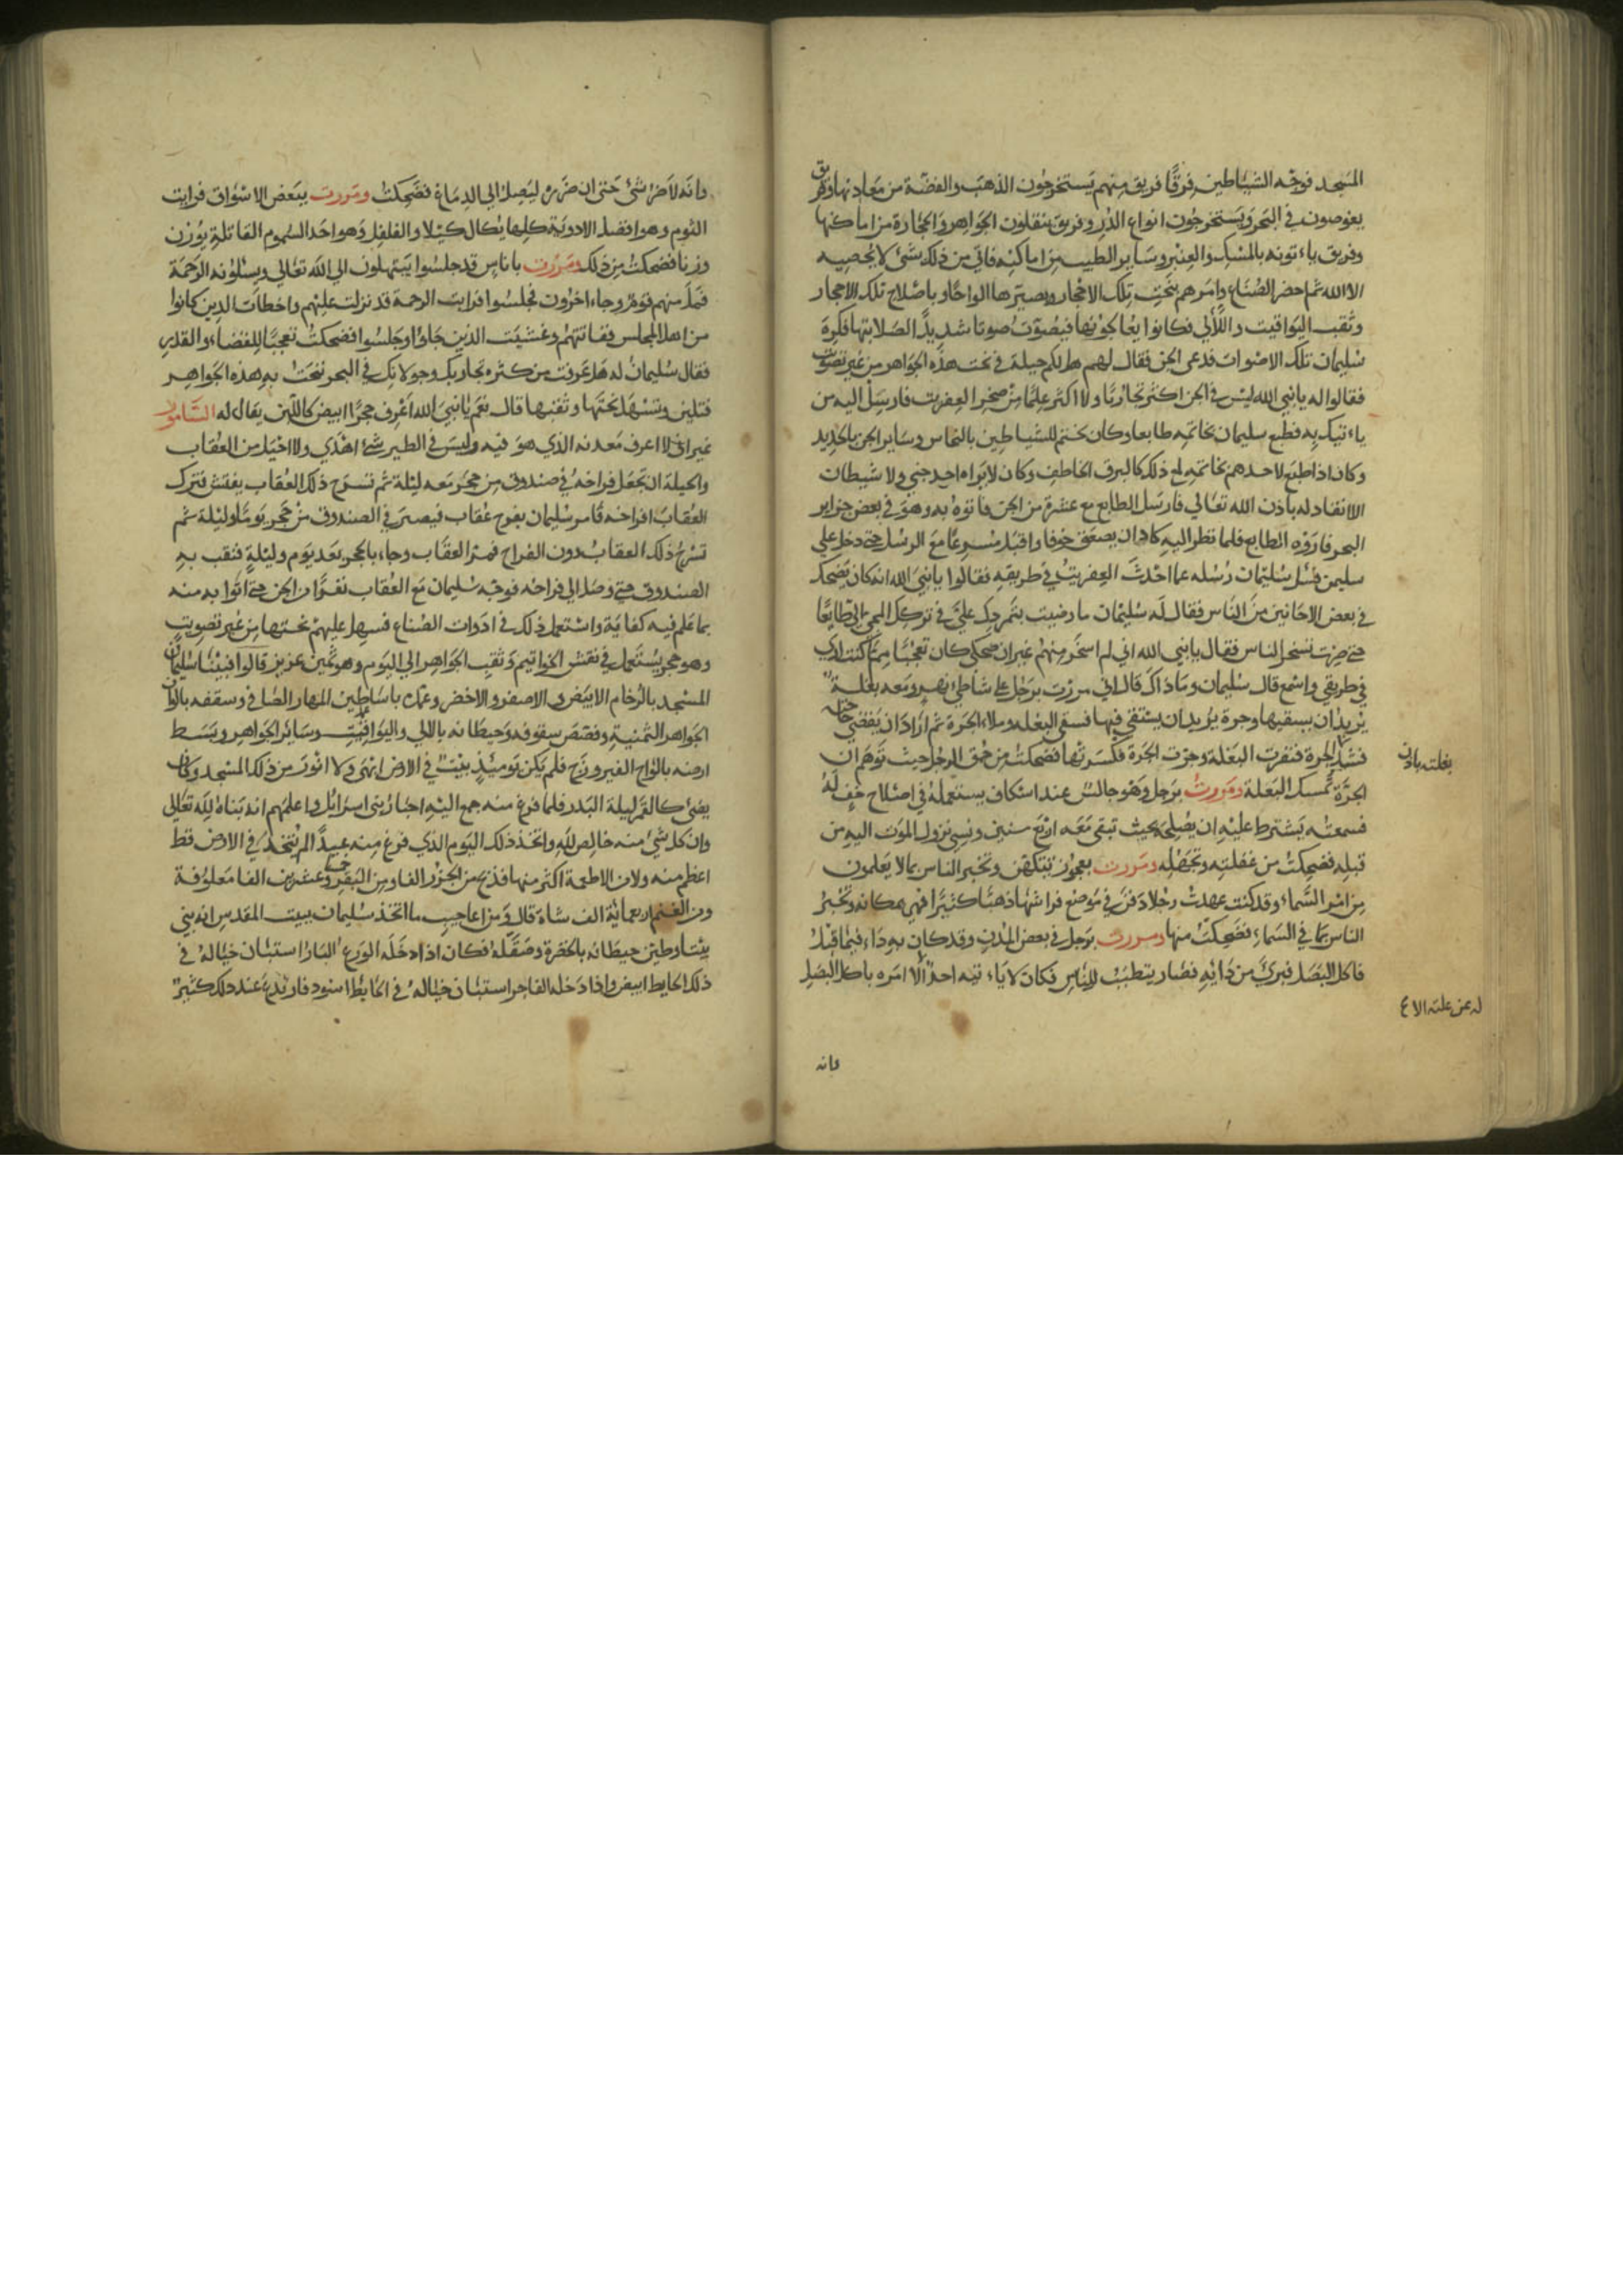 المسجد فوجّه الشياطين فرقًا فريق منهم يستخرجون الذهب والفضة من معادنها وفريق
يغوصون في البحر ويستخرجون انواع الدر وفريق ينقلون الجواهر والحجارة من اماكنها
وفريق ياءتونه بالمسك والعنبر وسائر الطيب من اماكنه فاتي من ذلك شئ لا يحصيه
الا الله ثم احضر الصناع وامرهم بنحت تلك الاحجار وبصيرها الواحًا وباصلاح تلك الاحجار
وثقب اليواقيت واللآلي فكانوا يعالجونها فيصوّت صوتا شديدًا لصلابتها فكره
سليمان تلك الاصوات فدعى الجن فقال لهم هل لكم حيلة في نحت هذه الجواهر من غير تصويت
فقالوا له يا نبي الله ليس في الجن اكثر تجاربًا ولا اكثر علمًا من صخر العفريت فارسل اليه من
ياءتيك به فطبع سليمان بخاتمه طابعا وكان يختم للشياطين بالنحاس وسائر الجن بالحديد
وكان اذا طبع لاحدهم بخاتمه لمع ذلك كالبرق الخاطف وكان لا يراه احد جني ولا شيطان
الا انقاد له باذن الله تعالي فارسل الطابع مع عشرة من الجن فاتوه به وهو في بعض جزاير
البحر فاروه الطابع فلما نظر اليه كاد ان يصعق خوفا واقبل مسرعًا مع الرسل حتى دخل علي
سليمن فسئل سليمان رسله عما احدث العفريت في طريقه فقالوا يا نبي الله انه كان يضحك
في بعض الاحانين من الناس فقال له سليمان ما رضيت بتمردك عليّ في تركك المجئ اليّ طايعًا
حتى صرت تسخر الناس فقال يا نبي الله اني لم اسخر منهم غير ان ضحكي كان تعجبًا مما كنت ارى
في طريقي واسمع قال سليمان وما ذاك قال اني مررت برجل علي شاطئ نهر ومعه بغلة
يريد ان يسقيها وجرة يريد ان يستقي فيها فسقى البغله وملاء الجرة ثم اراد ان يقضي حاجته
فشد الجرة فنفرت البغلة وجرت الجرة فكسرتها فضحكت من حمق الرجل حيث توهم ان
بغلته باذن
الجرة تمسك البغلة ومررت برجل وهو جالس عند اسكاف يستعمله في اصلاح خف له
فسمعته يشترط عليه ان يصلحه بحيث تبقى معه اربع سنين ونسي نزول الموت اليه من
قبله فضحكت من غفلته وتجهله ومررت بعجوز تتكهن وتخبر الناس بما لا يعلمون
من امر السماء وقد كنت عهدت رجلا دفن في موضع فراشها ذهبًا كثيرًا فهي مكانه وتخبر
الناس بما في السماء فضحكت منها ومررت برجل في بعض المدن وقد كان به داء فيما قيل
فاكل البصل فبرئ من دائه فصار يتطبب للناس فكان لا ياءتيه احد الا امره باكل البصل
له عن علته الا ع
فانه
وانه لاضر شئ حتى ان ضرره ليصل الي الدماغ فضحكت ومررت ببعض الاسواق فرايت
الثوم وهو افضل الادوية كلها يكال كيلا والفلفل وهو احد السموم القاتلة يوزن
وزنا فضحكت من ذلك ومررت باناس قد جلسوا يبتهلون الي الله تعالي ويسئلونه الرحمة
فمل منهم قوم وجاء اخرون فجلسوا فرايت الرحمة قد نزلت عليهم واخطات الذين كانوا
من اهل المجلس ففاتتهم وغشيت الذين جاؤا وجلسوا فضحكت تعجبًا للقضاء والقدر
فقال سليمان له هل عرفت من كثرة تجاربك وجولانك في البحر ننحت به هذه الجواهر
فتلين ويسهل نحتها وثقبها قال نعم يا نبي الله اعرف حجرًا ابيض كاللبن يقال له السامور
غير اني لا اعرف معدنه الذي هو فيه وليس في الطير شئ اهدى ولا احيل من العقاب
والحيلة ان تجعل فراخه في صندوق من حجر معه ليلة ثم تسرح ذلك العقاب يفتش فيترك
العقاب افراخه فامر سليمان بفرخ عقاب فيصير في الصندوق من حجر يومًا وليلة ثم
تسرح ذلك العقاب بدون الفراخ فمر العقاب وجاء بالحجر بعد يوم وليلة فنقب به
الصندوق حتى وصل الي فراخه فوجه سليمان مع العقاب نفرًا من الجن حتى اتوا به منه
بما علم فيه كفاية واستعمل ذلك في ادوات الصناع فسهل عليهم نحتها من غير تصويت
وهو حجر يستعمل في نقش الخواتيم وثقب الجواهر الي اليوم وهو ثمين عزيز قالوا فبنا سليمان
المسجد بالرخام الابيض والاصفر والاخضر وعمده باساطين المها الصافي وسقفه بالواح
الجواهر الثمنية وفصص سقوفه وحيطانه باللالي واليواقيت وسائر الجواهر وبسط
ارضه بالواح الفيروزج فلم يكن يومئذ بيت في الارض ابهى ولا انور من ذلك المسجد وكان
يضئ كالقمر ليلة البدر فلما فرغ منه جمع اليه احبار بنى اسرائل واعلمهم انه بناه لله تعالي
وان كل شئ منه خالص لله واتخذ ذلك اليوم الذي فرغ منه عيدًا لم يتخذ في الارض قط
اعظم منه ولان الاطعمة اكثر منها فذبح من الجزر الفا ومن البقر خمسة وعشرين الفا معلوفة
ومن الغنم اربعماية الف شاة قال ومن اعاجيب ما اتخذ سليمان ببيت المقدس انه بني
بيتا وطين حيطانه بالخضرة وصقله فكان اذا دخله الورع البار استبان خياله في
ذلك الحايط ابيض واذا دخله الفاجر استبان خياله في الحايط اسود فارتدع عند ذلك كثير